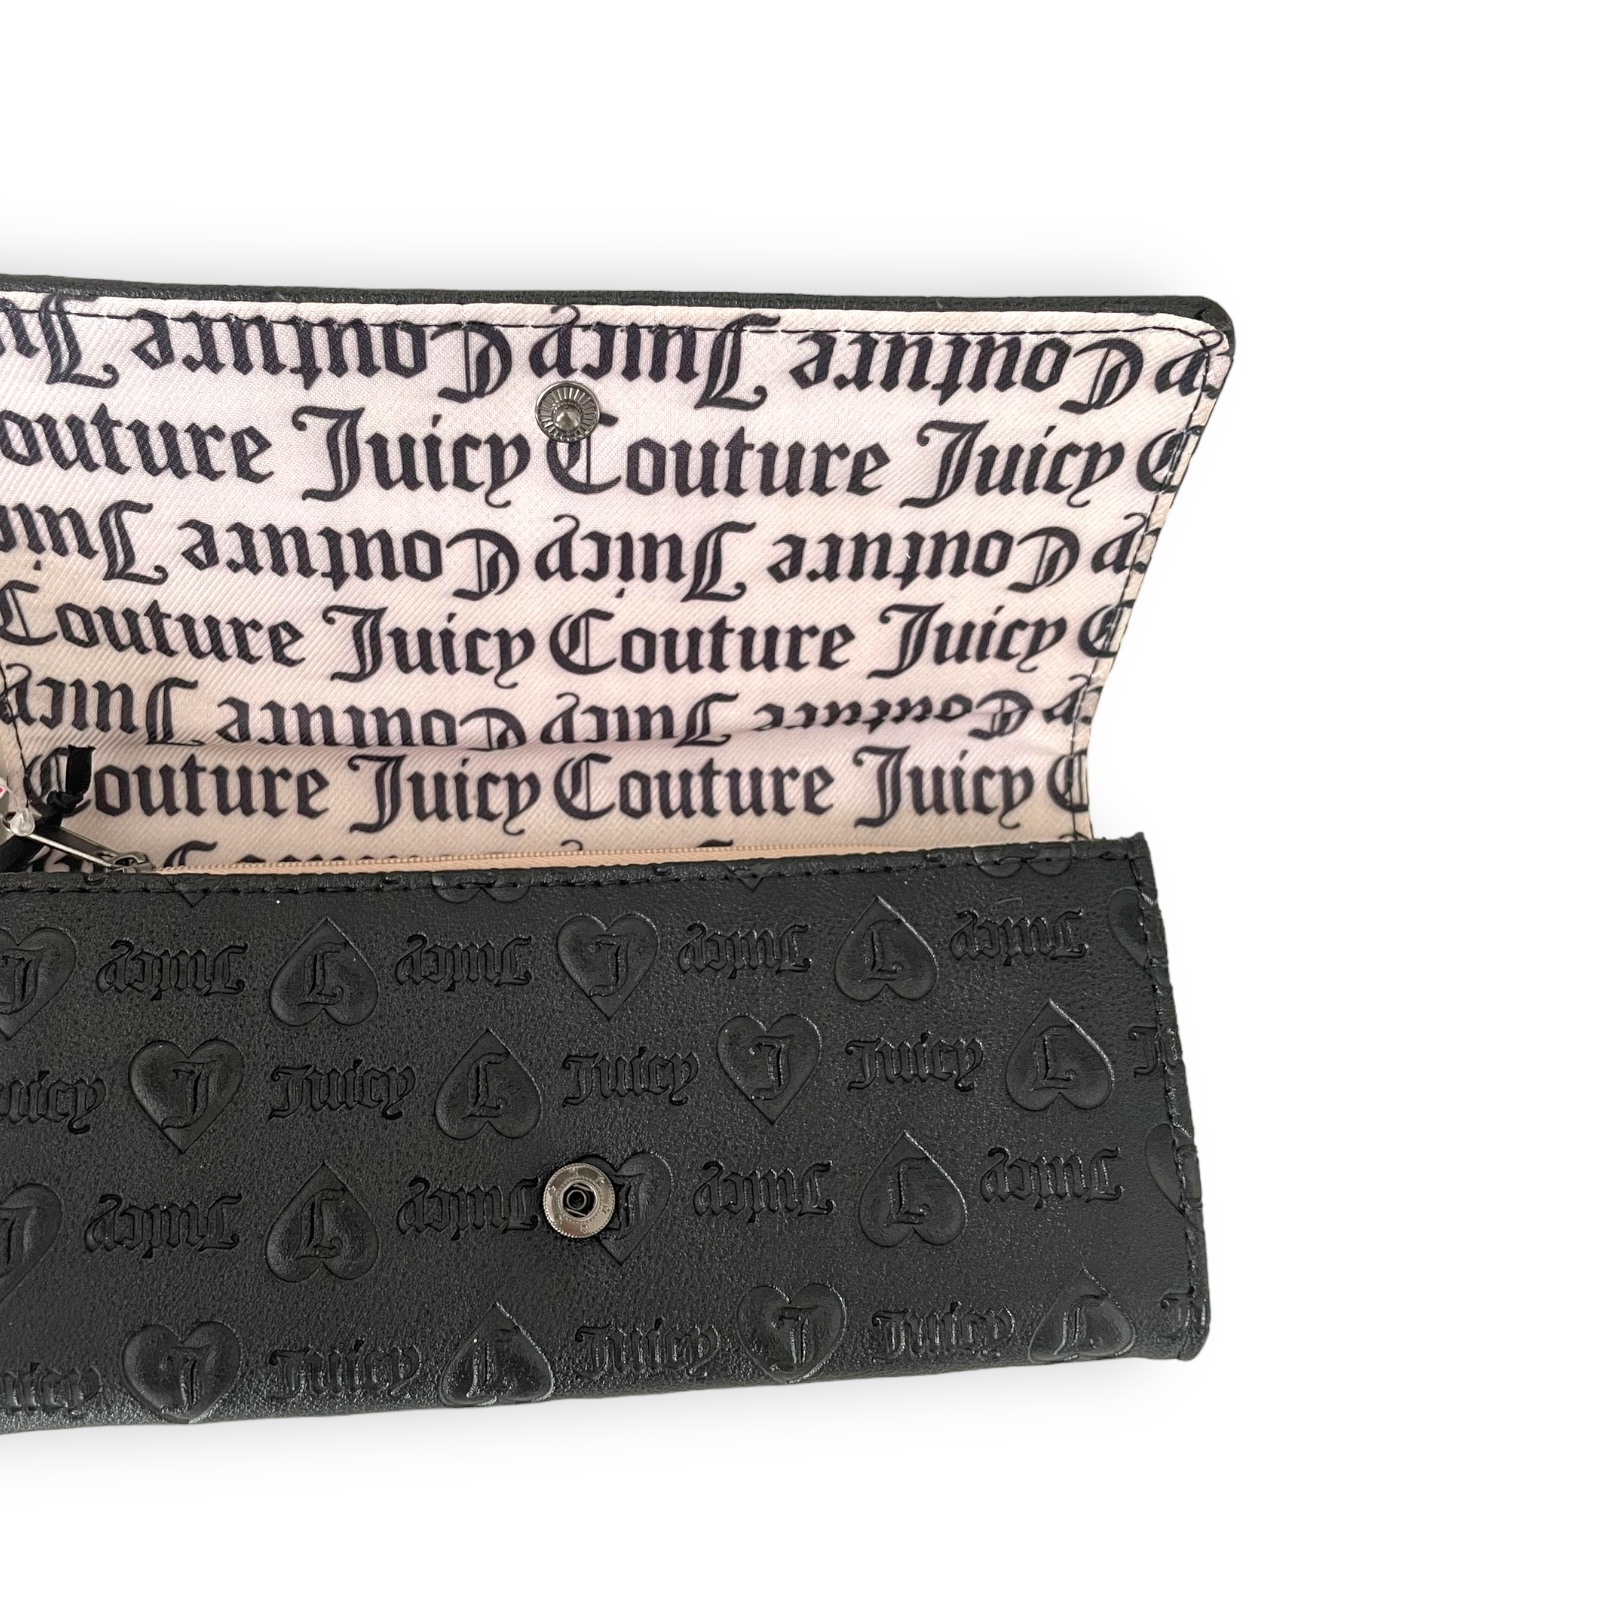 Juicy Couture Juicy Couture
Couture Juicy Couture Juicy
Juicy Couture Juicy Couture
Couture Juicy Couture Juicy
Juicy Couture Juicy Couture
Couture Juicy Couture Juicy
J Juicy J Juicy J Juicy J Juicy
Juicy J Juicy J Juicy J Juicy J
J Juicy J Juicy J Juicy J Juicy
Juicy J Juicy J Juicy J Juicy J